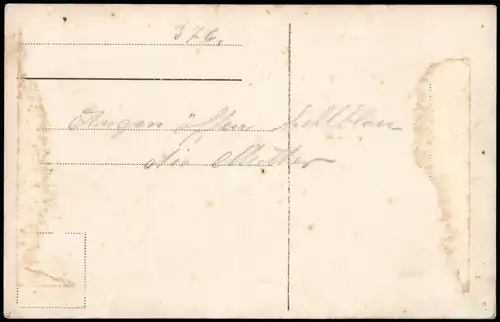 376.
Augen öffnen hellblau
die Mutter